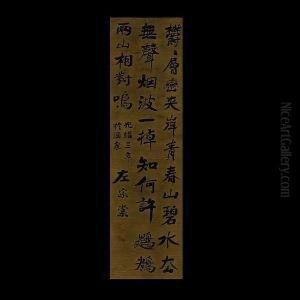 鬱〻層巒夾岸青春山碧水去
無聲烟波一棹知何許鷓鴣
兩山相對鳴
光緒三年
左宗棠
NiceArtGallery.com